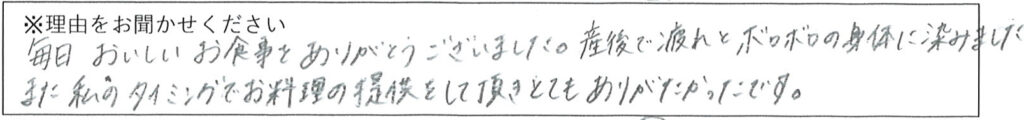 ※理由をお聞かせください
毎日 おいしい お食事を ありがとうございました。産後で疲れと ボロボロの身体に染みました
また 私の タイミングでお料理の提供をして頂きとても ありがたかったです。